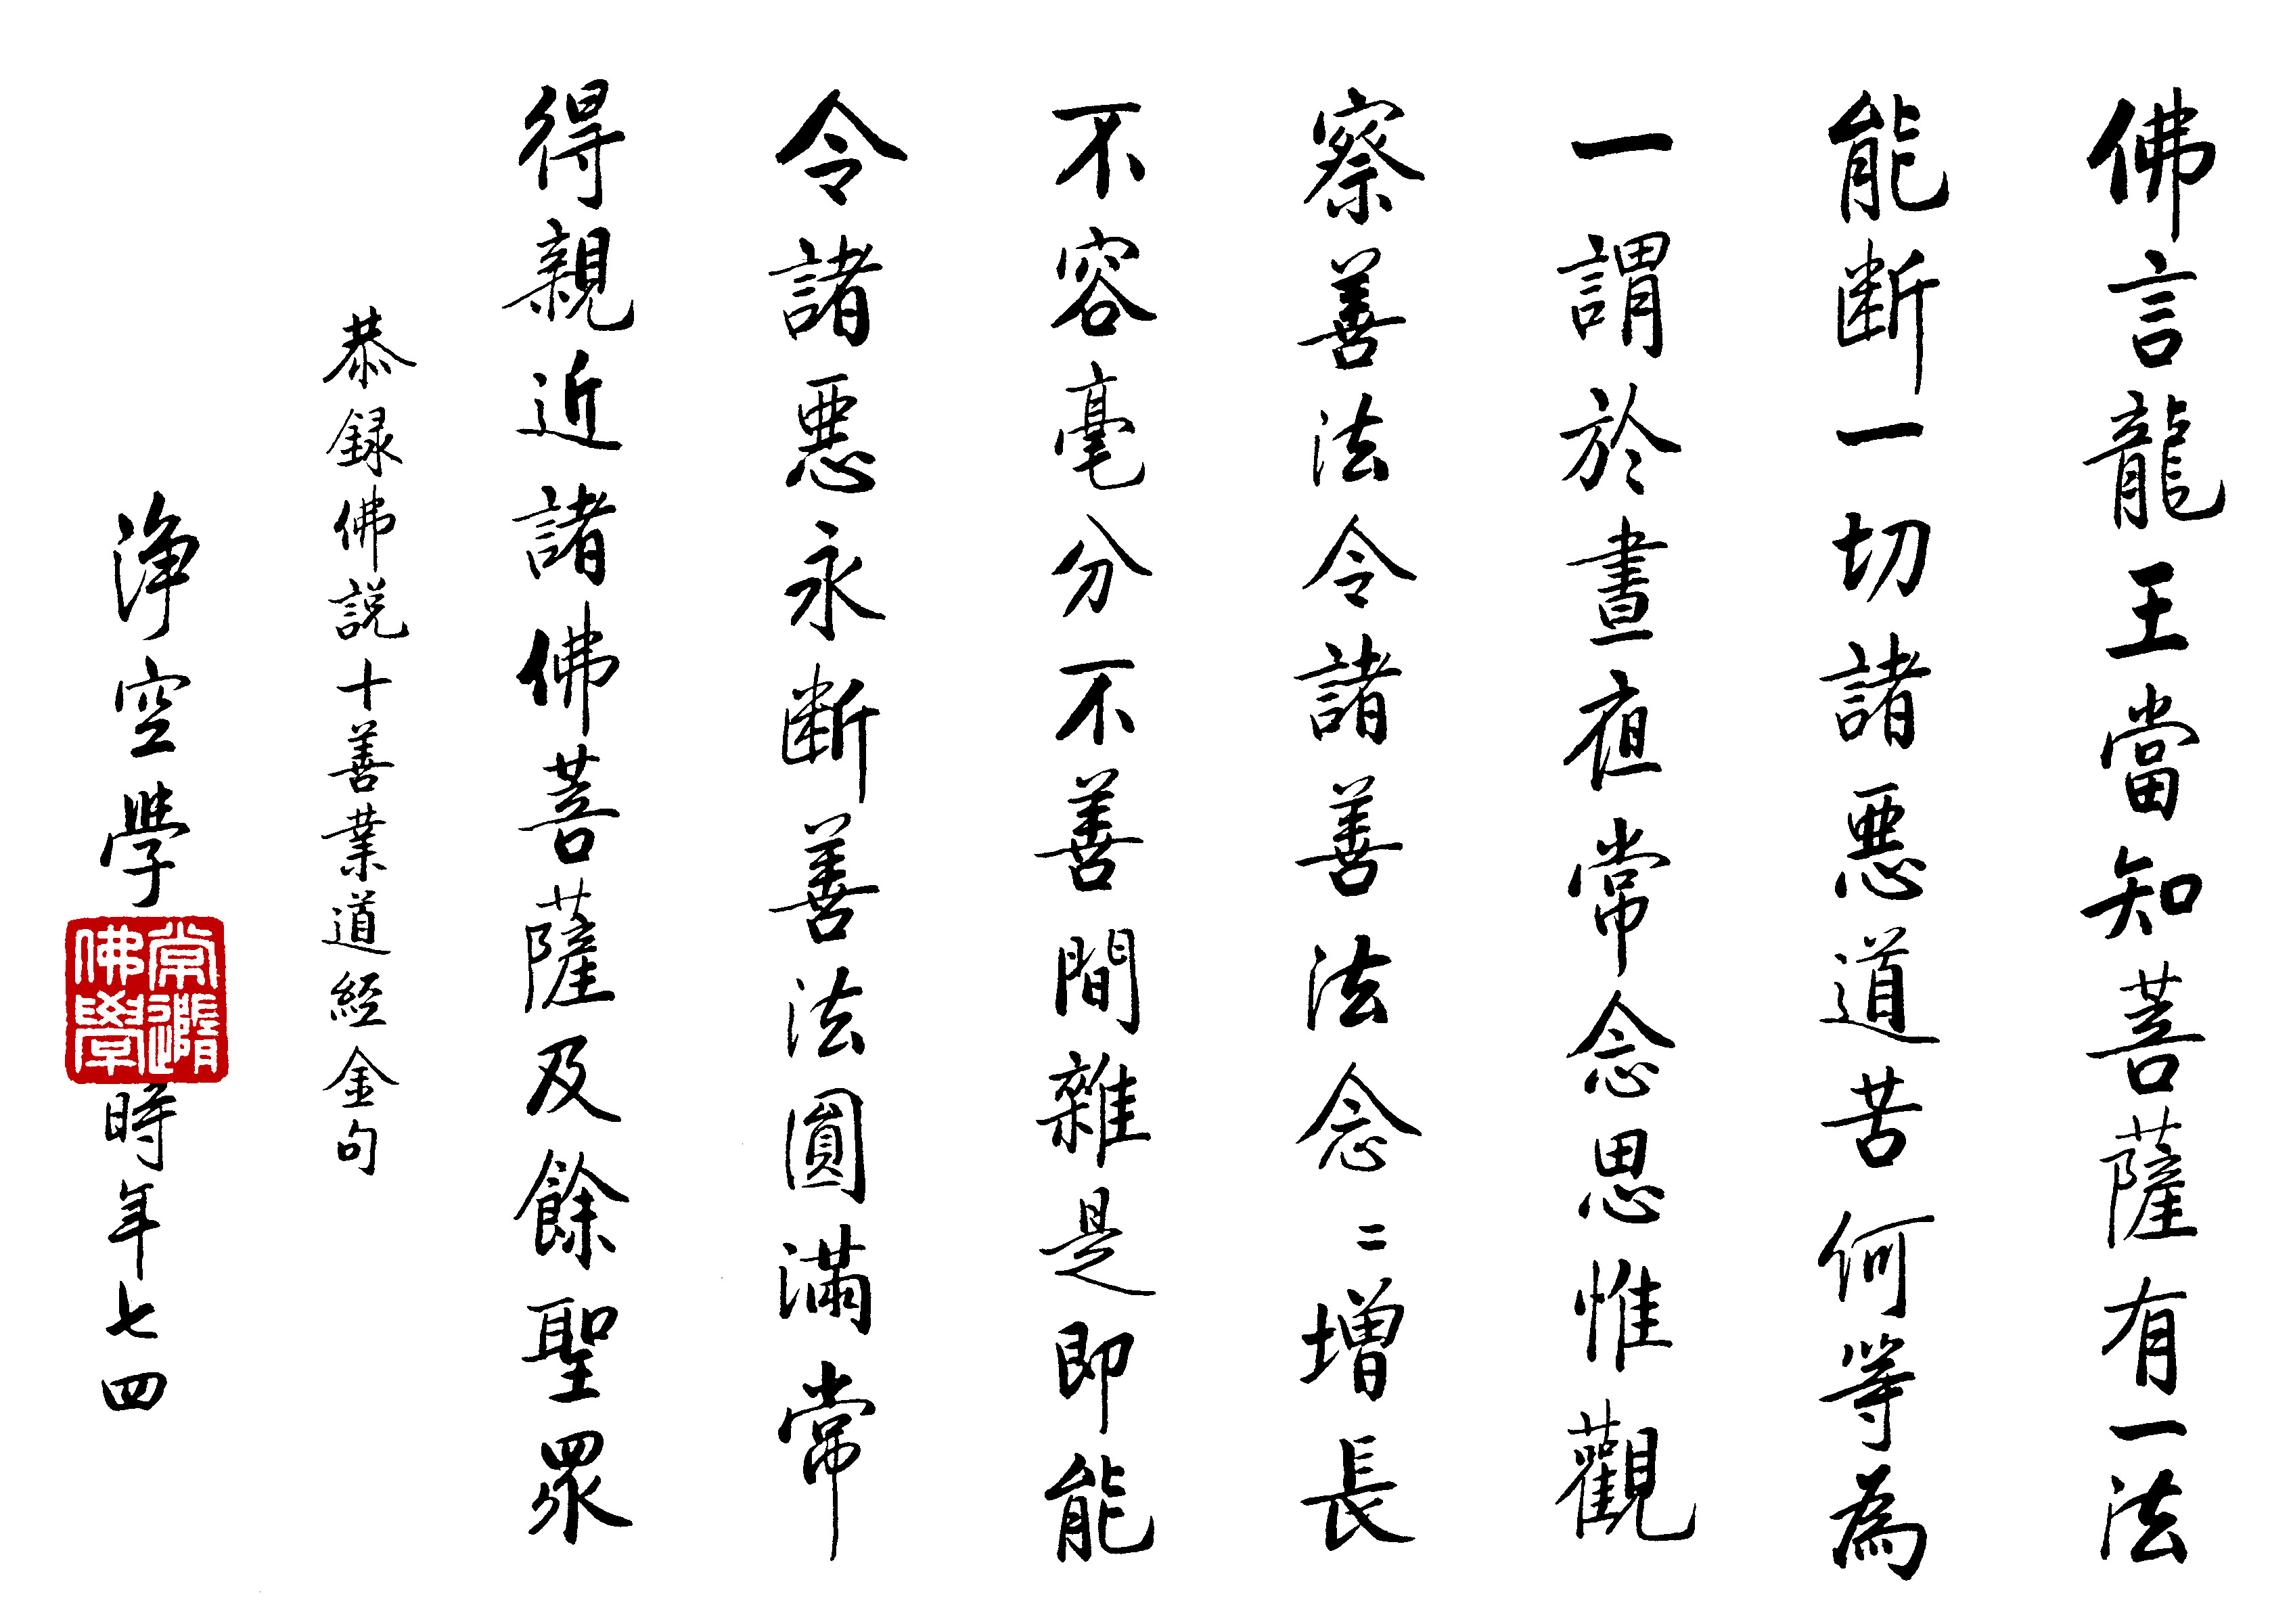 佛言龍王當知菩薩有一法
能断一切諸惡道苦何等為
一謂於晝夜常念思惟觀
察善法令諸善法念〻增長
不容毫分不善間雜是即能
令諸惡永断善法圓滿常
得親近諸佛菩薩及餘聖眾
恭録佛説十善業道經金句
淨空學時年七四
常隨佛學